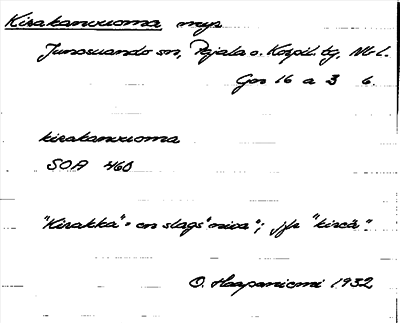 Kirakanvuoma myr
Junosuando sn, Pajala o. Korpil. tg, Nb. l.
Gor 16 a 3 6.
kirakanvuoma
SOA 460
"Kirakka" = en slags "niva"; jfr "kircä"
O. Haapaniemi 1932